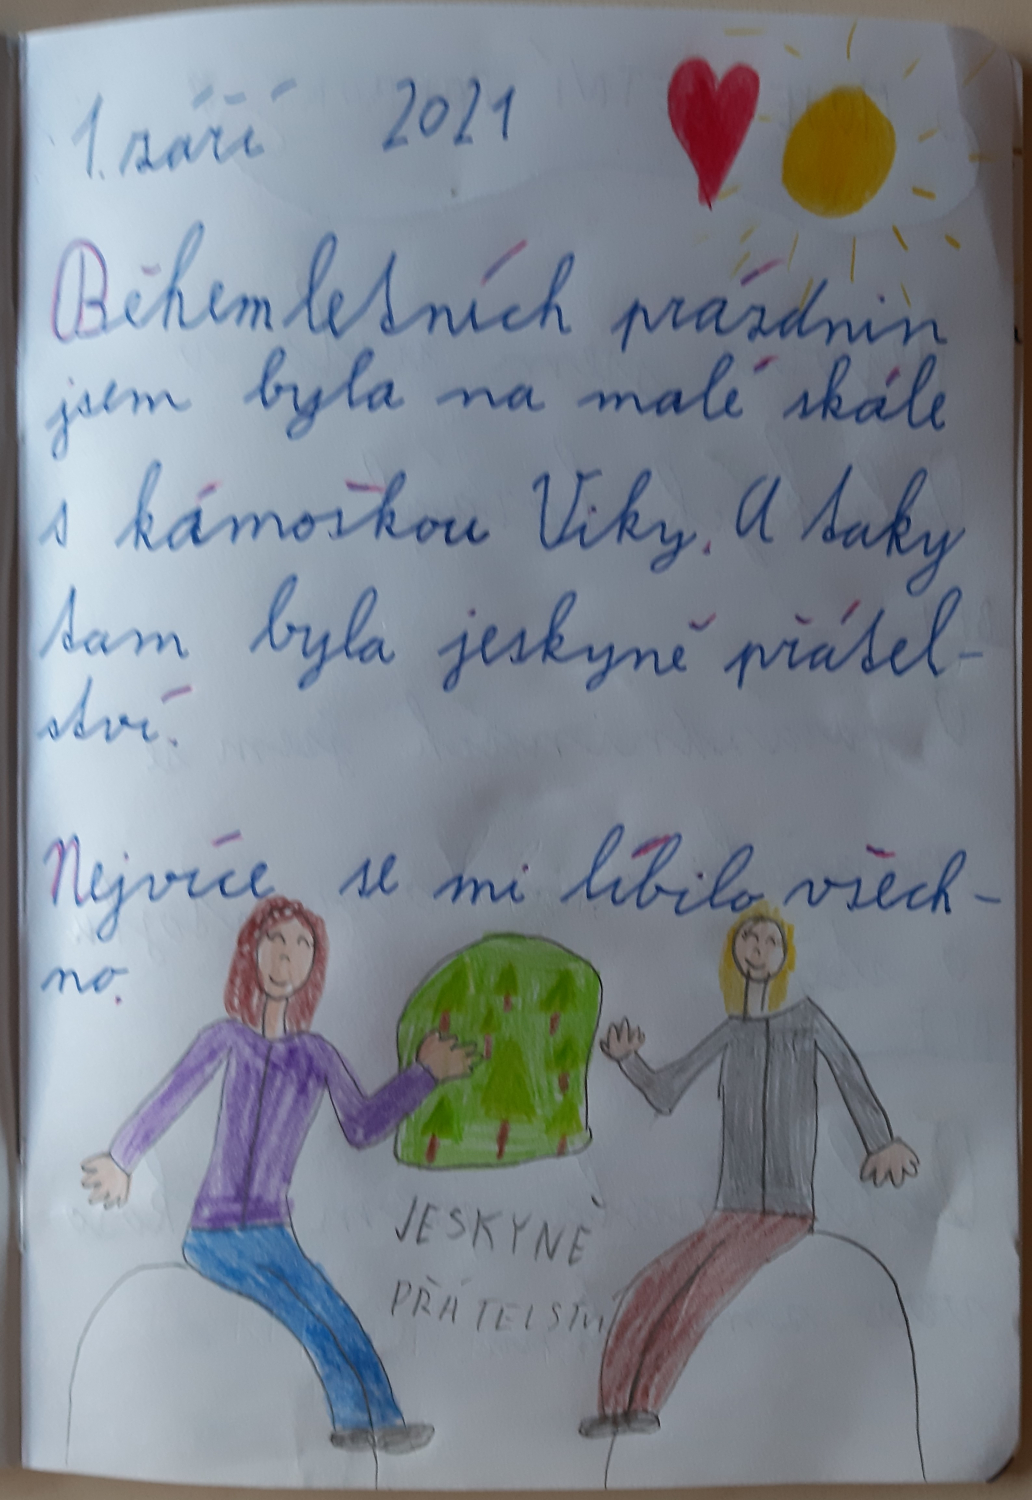 1. září 2021
Během letních prázdnin
jsem byla na malé skále
s kámoškou Viky. A taky
tam byla jeskyně přátel-
ství.
Nejvíce se mi líbilo všech-
no.
JESKYNĚ
PŘÁTELSTVÍ